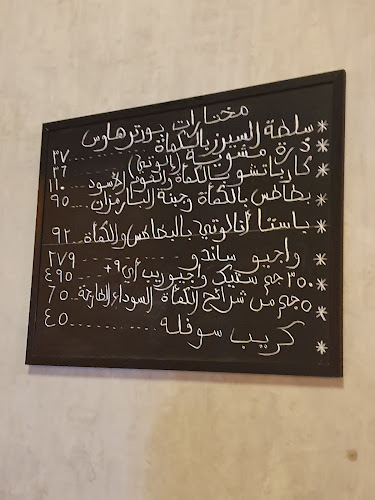 مختارات بورتر هاوس
* سلطة السيزر بالكمأة ٣٧
* ذرة مشوية (انالوتي) ٣٦
* كارباتشو بالكمأة والثوم الأسود ١١٠
* بطاطس بالكمأة وجبنة البارمزان ٩٥
* باستا انالوتي بالبطاطس والكمأة ٩٢
* واجيو ساندو ٢٧٩
* ٣٠٠ جم ستيك واجيو ريب أي ٩+ ٤٩٠
* ٥ جم من شرائح الكمأة السوداء الطازجة ٦٥
* كريب سوفله ٤٥